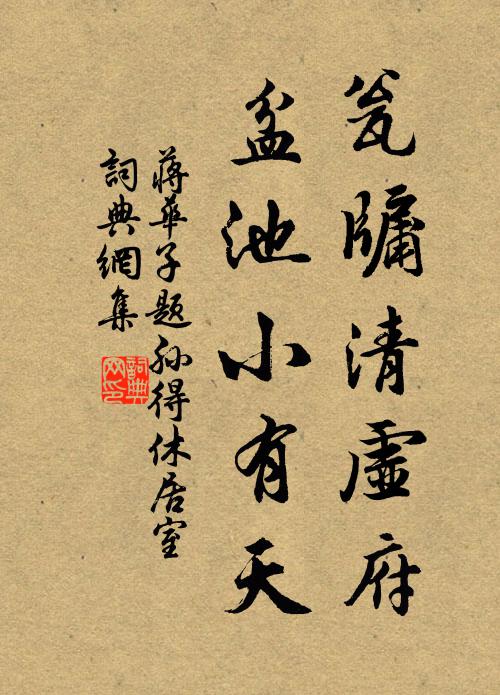 瓮牖清虛府
盆池小有天
蔣華子題孫得休居室
詞典網集
詞典
網印